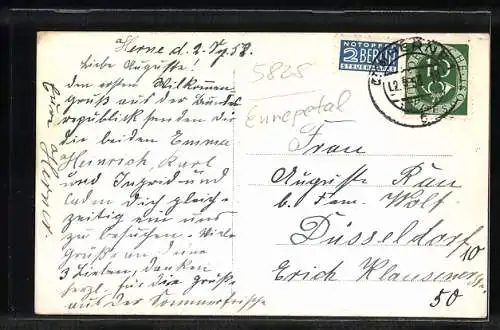 Herne d. 2.
Liebe Auguste!
den ersten Wilkommen
gruß aus der Bundes
republick senden dir
die beiden Emma
Heinrich, Karl
und Ingrid und
laden dich gleich-
zeitig ein uns
zu besuchen. Viele
Grüße an deine
3 Lieben, danken
herzl. für die Grüße
aus der Sommerfrische
eure Herner.
5825
Ennepetal
NOTOPFER
2 BERLIN
STEUERMARKE
HERNE
10
Frau
Auguste Rau
b. Fam. Wolf
Düsseldorf/10
Erich Klausener
50